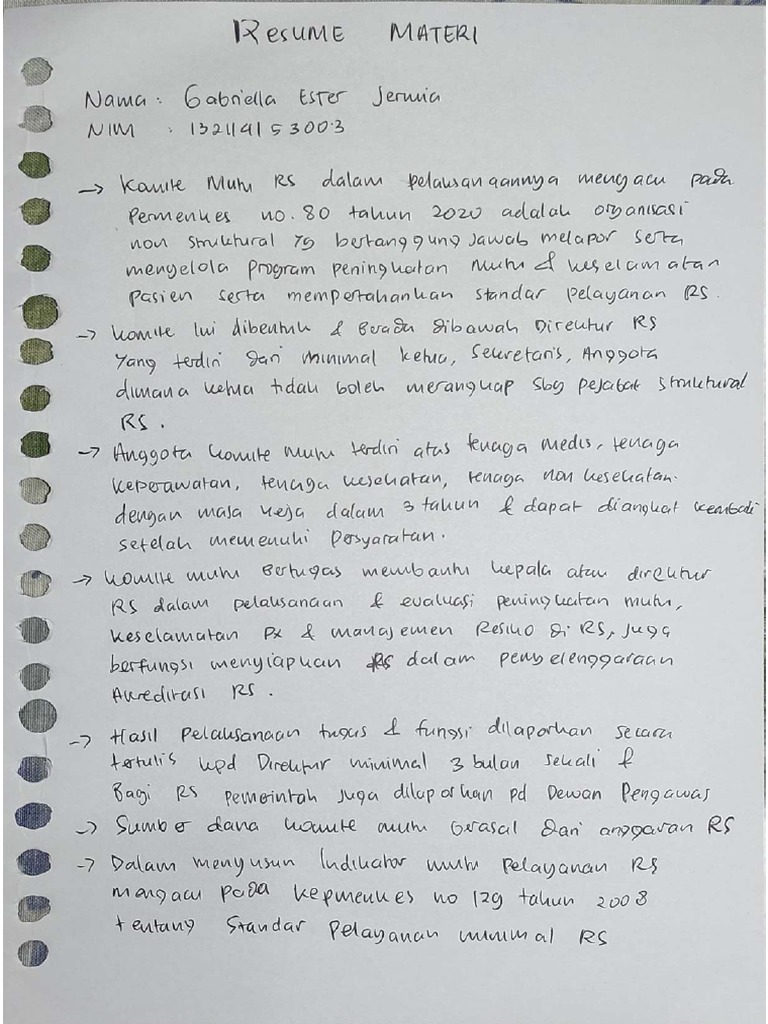 RESUME MATERI
Nama : Gabriella Ester Jermia
NIM : 132114153003
→ Komite Mutu RS dalam pelaksanaannya mengacu pada
Permenkes no. 80 tahun 2020 adalah organisasi
non struktural yg bertanggung jawab melapor serta
mengelola program peningkatan mutu & keselamatan
pasien serta mempertahankan standar pelayanan RS.
→ Komite Ini dibentuk & Berada dibawah Direktur RS
Yang terdiri dari minimal ketua, Sekretaris, Anggota
dimana ketua tidak boleh merangkap sbg pejabat struktural
RS.
→ Anggota komite mutu terdiri atas tenaga medis, tenaga
keperawatan, tenaga kesehatan, tenaga non kesehatan.
dengan masa keja dalam 3 tahun & dapat diangkat kembali
setelah memenuhi persyaratan.
→ Komite mutu Bertugas membantu kepala atau direktur
RS dalam pelaksanaan & evaluasi peningkatan mutu,
keselamatan px & manajemen Resiko di RS, juga
berfungsi menyiapkan RS dalam penyelenggaraan
Akreditasi RS.
→ Hasil pelaksanaan tugas & fungsi dilaporkan secara
tertulis kpd Direktur minimal 3 bulan sekali &
Bagi RS pemerintah juga dilaporkan pd Dewan Pengawas
→ Sumber dana komite mutu berasal dari anggaran RS
→ Dalam menyusun Indikator mutu pelayanan RS
mengacu pada kepmenkes no 129 tahun 2008
tentang Standar Pelayanan minimal RS